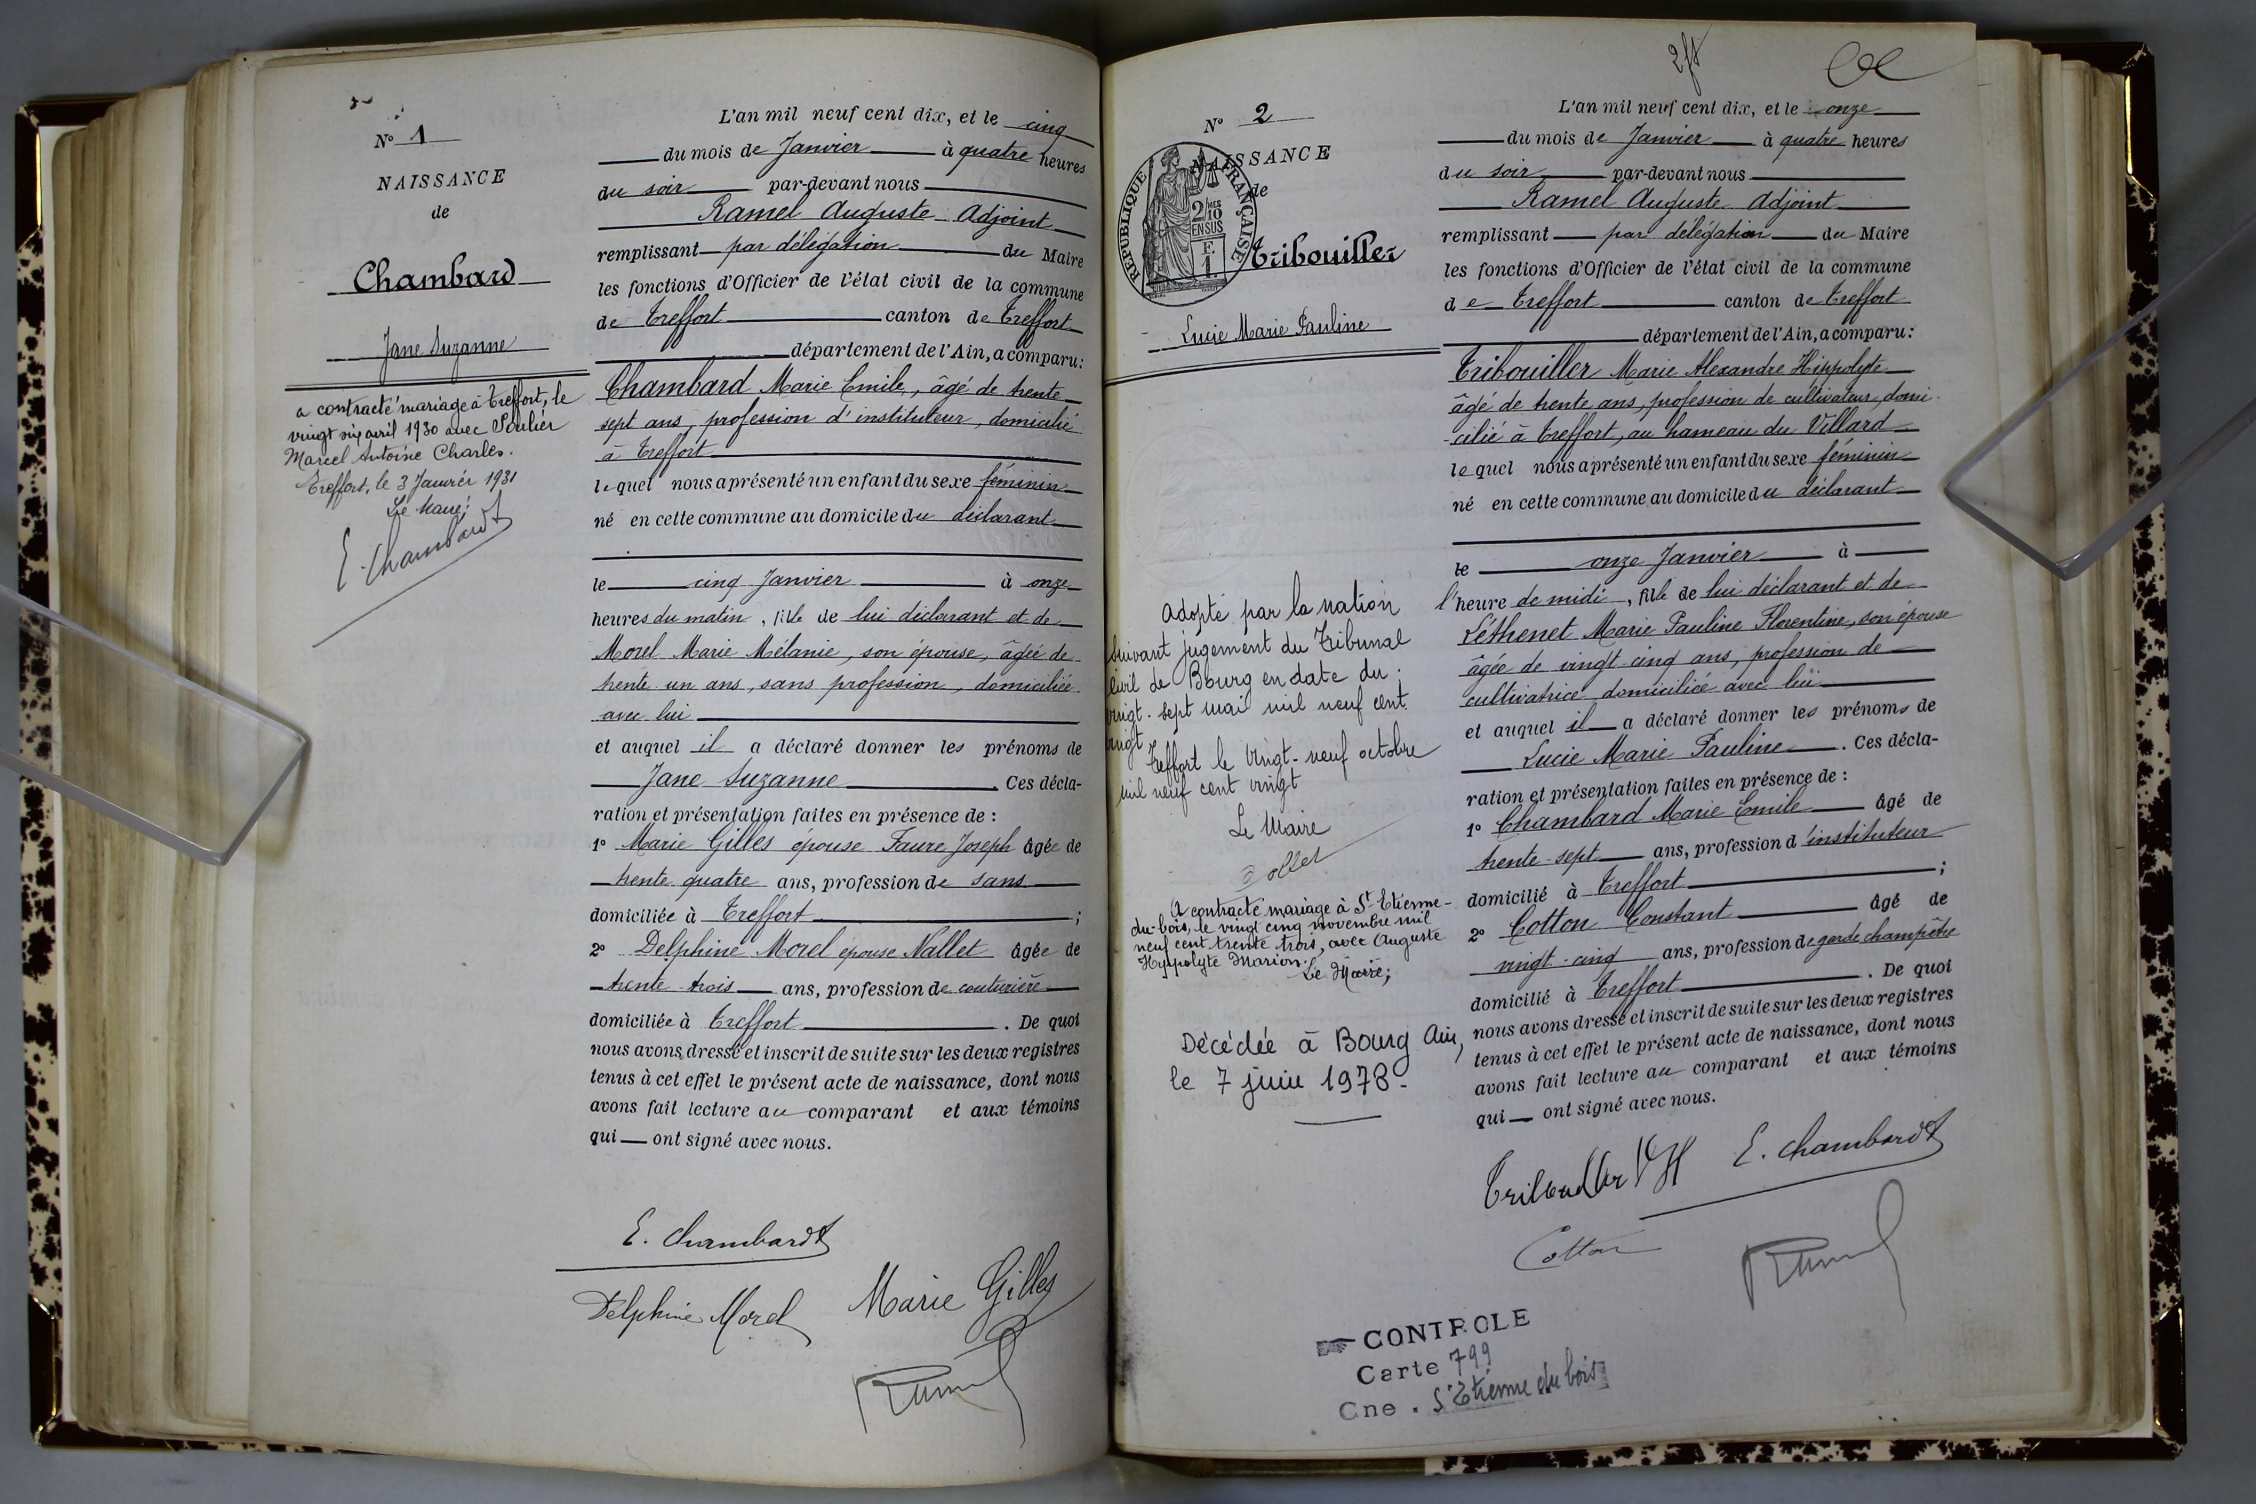 N° 1
NAISSANCE
de
Chambard
Jane Suzanne
a contracté mariage à Treffort, le
vingt six avril 1930 avec Soulier
Marcel Antoine Charles.
Treffort, le 3 Janvier 1931
Le Maire;
E. Chambard
L'an mil neuf cent dix, et le cinq
du mois de Janvier à quatre heures
du soir par-devant nous
Ramel Auguste Adjoint
remplissant par délégation du Maire
les fonctions d'Officier de l'état civil de la commune
de Treffort canton de Treffort
département de l'Ain, a comparu:
Chambard Marie Emile, âgé de trente
sept ans, profession d'instituteur, domicilié
à Treffort
lequel nous a présenté un enfant du sexe féminin
né en cette commune au domicile du déclarant
le cinq Janvier à onze
heures du matin, fille de lui déclarant et de
Morel Marie Mélanie, son épouse, âgée de
trente un ans, sans profession, domiciliée
avec lui
et auquel il a déclaré donner les prénoms de
Jane Suzanne. Ces décla-
ration et présentation faites en présence de :
1° Marie Gilles épouse Faure Joseph âgée de
trente quatre ans, profession de sans
domiciliée à Treffort ;
2° Delphine Morel épouse Nallet âgée de
trente trois ans, profession de couturière
domiciliée à Treffort. De quoi
nous avons dressé et inscrit de suite sur les deux registres
tenus à cet effet le présent acte de naissance, dont nous
avons fait lecture au comparant et aux témoins
qui ont signé avec nous.
E. Chambard
Delphine Morel Marie Gilles
Ramel
N° 2
NAISSANCE
de
REPUBLIQUE FRANÇAISE
2/10
EN SUS
Tribouiller
Lucie Marie Pauline
Adopté par la nation
suivant jugement du Tribunal
civil de Bourg en date du
vingt-sept mai mil neuf cent
vingt
Treffort le vingt-neuf octobre
mil neuf cent vingt
Le Maire
A contracté mariage à St Etienne-
du-bois, le vingt cinq novembre mil
neuf cent trente trois, avec Auguste
Hyppolyte Marion.
Le Maire;
Décédée à Bourg Ain,
le 7 juin 1978.
L'an mil neuf cent dix, et le onze
du mois de Janvier à quatre heures
du soir par-devant nous
Ramel Auguste Adjoint
remplissant par délégation du Maire
les fonctions d'Officier de l'état civil de la commune
de Treffort canton de Treffort
département de l'Ain, a comparu:
Tribouiller Marie Alexandre Hippolyte
âgé de trente ans, profession de cultivateur, domi-
cilié à Treffort, au hameau du Villard
lequel nous a présenté un enfant du sexe féminin
né en cette commune au domicile du déclarant
le onze Janvier à
l'heure de midi, fille de lui déclarant et de
Léthenet Marie Pauline Florentine, son épouse
âgée de vingt-cinq ans, profession de
cultivatrice, domiciliée avec lui
et auquel il a déclaré donner les prénoms de
Lucie Marie Pauline. Ces décla-
ration et présentation faites en présence de :
1° Chambard Marie Emile âgé de
trente-sept ans, profession d'instituteur
domicilié à Treffort ;
2° Cotton Constant âgé de
vingt-cinq ans, profession de garde champêtre
domicilié à Treffort. De quoi
nous avons dressé et inscrit de suite sur les deux registres
tenus à cet effet le présent acte de naissance, dont nous
avons fait lecture au comparant et aux témoins
qui ont signé avec nous.
Tribouiller E. Chambard
Cotton Ramel
CONTROLE
Carte 799
Cne. St Etienne du bois